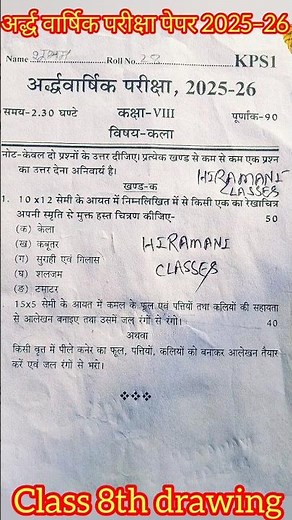 अर्द्ध वार्षिक परीक्षा पेपर 2025-26
Name Roll No. 23
KPS1
अर्द्धवार्षिक परीक्षा, 2025-26
समय-2.30 घण्टे कक्षा-VIII पूर्णांक-90
विषय-कला
नोट-केवल दो प्रश्नों के उत्तर दीजिए। प्रत्येक खण्ड से कम से कम एक प्रश्न
का उत्तर देना अनिवार्य है।
HIRAMANI
CLASSES
खण्ड-क
1. 10 x12 सेमी के आयत में निम्नलिखित में से किसी एक का रेखाचित्र
अपनी स्मृति से मुक्त हस्त चित्रण कीजिए- 50
(क) केला
(ख) कबूतर
(ग) सुराही एवं गिलास
(घ) शलजम
(ङ) टमाटर
HIRAMANI
CLASSES
15x5 सेमी के आयत में कमल के फूल एवं पत्तियों तथा कलियों की सहायता
से आलेखन बनाइए तथा उसमें जल रंगों से रंगो। 40
अथवा
किसी वृत्त में पीले कनेर का फूल, पत्तियों, कलियों को बनाकर आलेखन तैयार
करें एवं जल रंगों से भरो।
Class 8th drawing